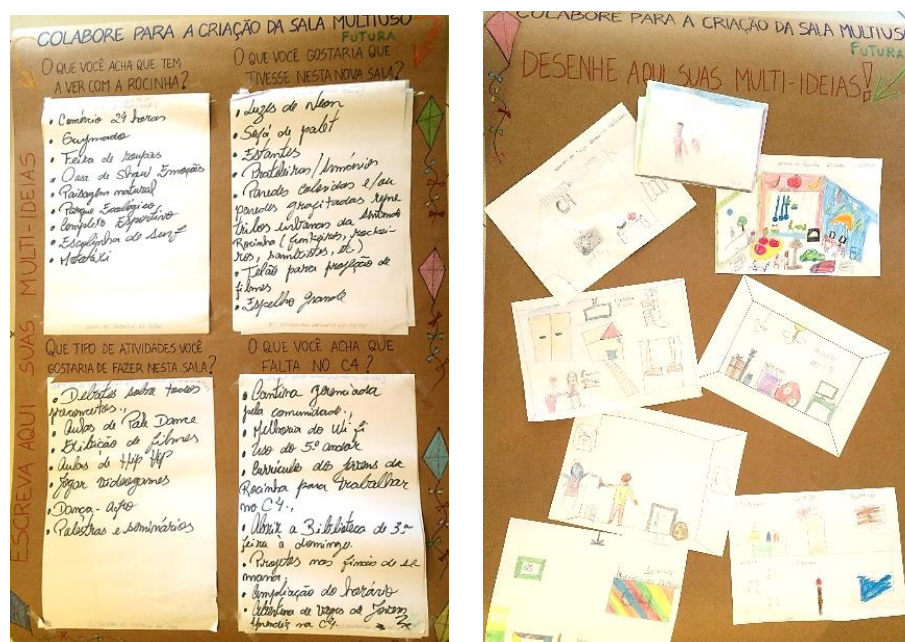 COLABORE PARA A CRIAÇÃO DA SALA MULTIUSO
FUTURA
ESCREVA AQUI SUAS MULTI-IDEIAS
O QUE VOCÊ ACHA QUE TEM
A VER COM A ROCINHA?
• Comércio 24 horas
• Gaymado
• Feira de roupas
• Casa de Show Emoções
• Paisagem natural
• Parque Ecológico
• Complexo Esportivo
• Escolinha de surf
• Mototáxi
O QUE VOCÊ GOSTARIA QUE
TIVESSE NESTA NOVA SALA?
• Luzes de Neon
• Sofá de palet
• Estantes
• Prateleiras/Armários
• Paredes coloridas e/ou
paredes grafitadas repre
tribos urbanas da
Rocinha (funkeiros, rockei-
ros, sambistas, etc.)
• Telão para projeção de
filmes
• Espelho grande
QUE TIPO DE ATIVIDADES VOCÊ
GOSTARIA DE FAZER NESTA SALA?
• Debates sobre todos
preconceitos.,
• Aulas de Pole Dance
• Exibição de filmes
• Aulas de Hip Hop
• Jogar videogames
• Dança-afro
• Palestras e seminários
O QUE VOCÊ ACHA QUE
FALTA NO C4?
• Cantina gerenciada
pela comunidade.,
• Melhoria do Wi-fi
• Uso do 5º andar
• Currículo dos jovens da
Rocinha para trabalhar
no C4.,
• Abrir a Biblioteca de 3ª
feira à domingo.
• Projetos nos finais de se
mana
• Ampliação do horário
• Abertura de vagas de Jovem
Aprendiz no C4.
COLABORE PARA A CRIAÇÃO DA SALA MULTIUSO
FUTURA
DESENHE AQUI SUAS MULTI-IDEIAS!